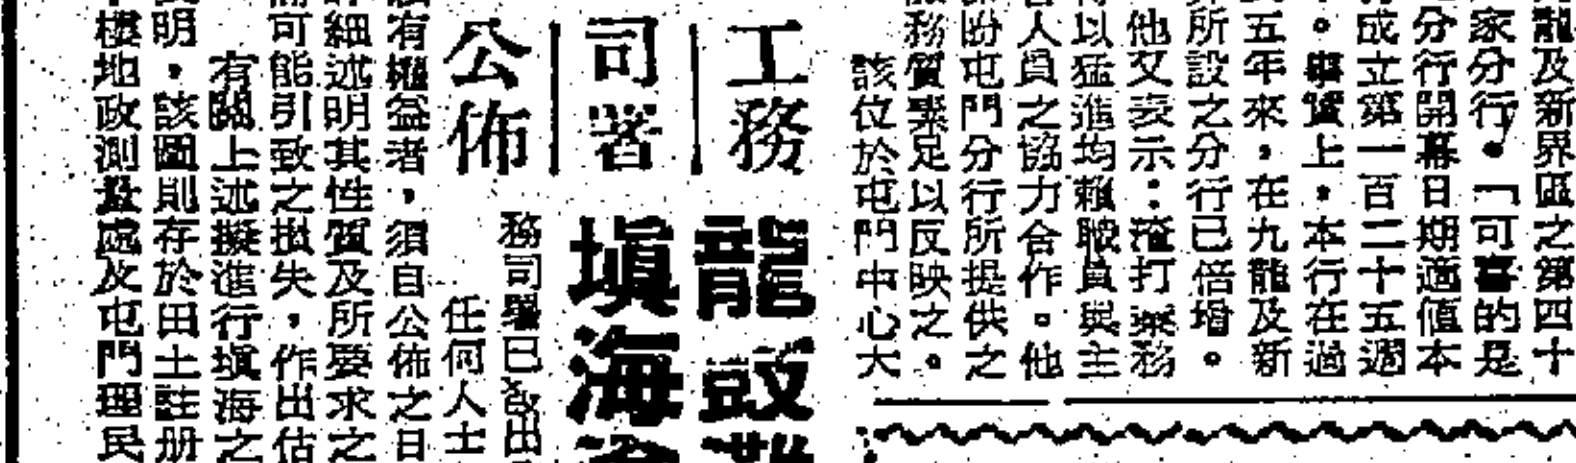 龍及新界區之第四十
家分行。「可喜的是
分行開幕日期適值本
成立第一百二十五週
。事實上,本行在過
五年來,在九龍及新
所設之分行已倍增。
他又表示:渣打業務
以猛進均賴職員與主
人員之協力合作。他
盼屯門分行所提供之
務質素足以反映之。
該位於屯門中心大
工務
司署
公佈
龍鼓灘
填海
務司署已發出
任何人士
有權益者,須自公佈之日
細述明其性質及所要求之
可能引致之損失,作出估
有關上述擬進行填海之
明,該圖則存於田土註册
樓地政測量處及屯門理民